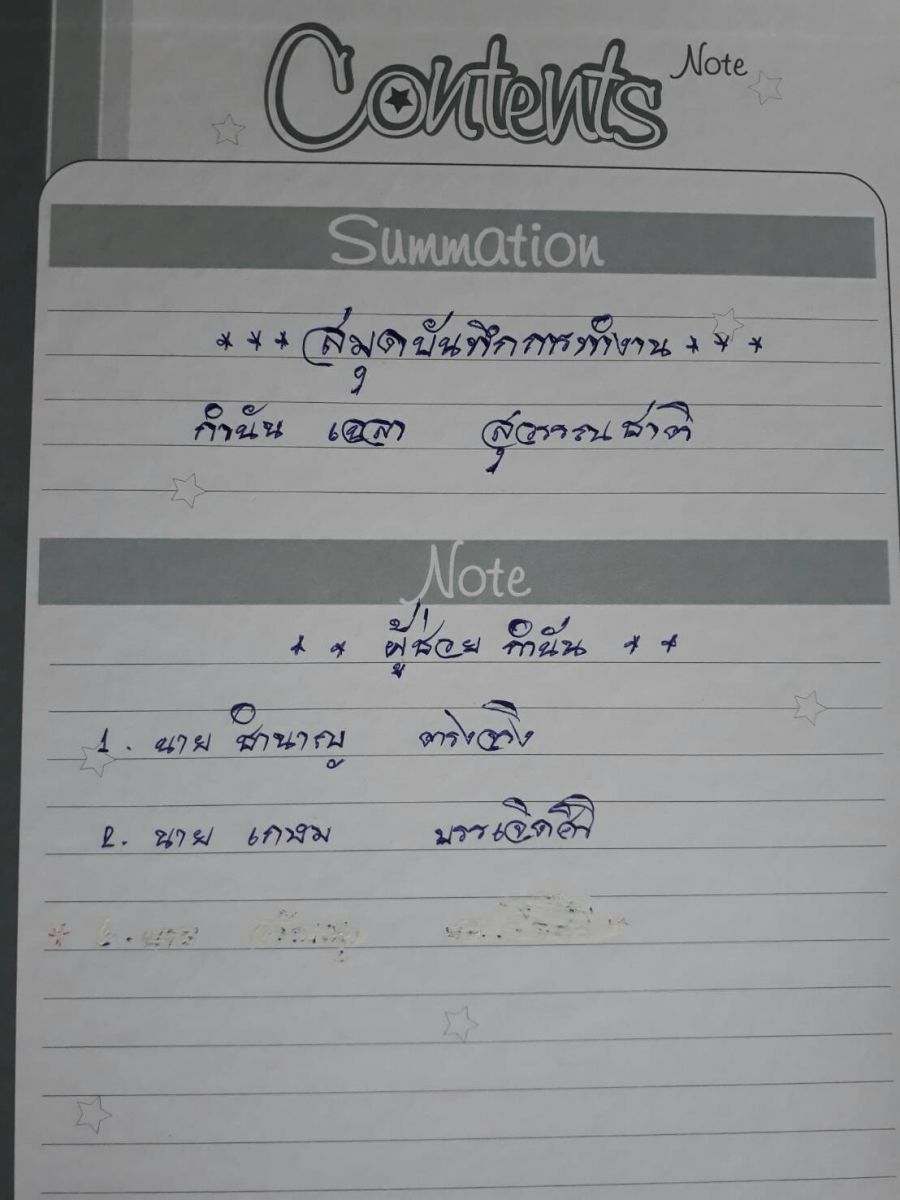 Contents Note
Summation
*** สมุดบันทึกการทำงาน ***
กำนัน เฉลา สุวรรณชาติ
Note
** ผู้ช่วย กำนัน **
1. นาย ชำนาญ จริงจิง
2. นาย เกษม บรรเจิด
* นาย